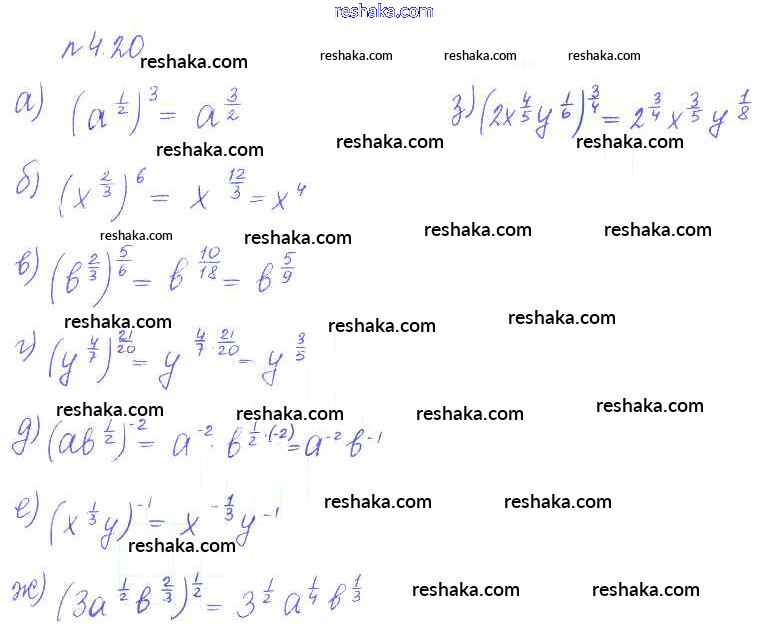 reshaka.com
№4.20
reshaka.com reshaka.com reshaka.com reshaka.com
а) (a^{1/2})^3 = a^{3/2}
reshaka.com reshaka.com reshaka.com
б) (x^{2/3})^6 = x^{12/3} = x^4
reshaka.com reshaka.com reshaka.com reshaka.com
в) (b^{2/3})^{5/6} = b^{10/18} = b^{5/9}
reshaka.com reshaka.com reshaka.com
г) (y^{4/7})^{21/20} = y^{4/7 · 21/20} = y^{3/5}
reshaka.com reshaka.com reshaka.com reshaka.com
д) (ab^{1/2})^{-2} = a^{-2} · b^{1/2·(-2)} = a^{-2} b^{-1}
reshaka.com reshaka.com
е) (x^{1/3}y)^{-1} = x^{-1/3} y^{-1}
reshaka.com reshaka.com reshaka.com
ж) (3a^{1/2} b^{2/3})^{1/2} = 3^{1/2} a^{1/4} b^{1/3}
з) (2x^{4/5} y^{1/6})^{3/4} = 2^{3/4} x^{3/5} y^{1/8}